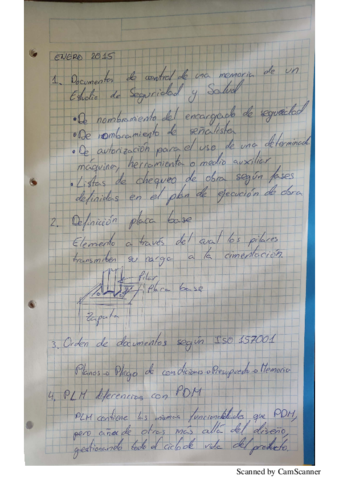 ENERO 2015
1. Documentos de control de una memoria de un
Estudio de Seguridad y Salud
• De nombramiento del encargado de seguridad
• De nombramiento de señalista
• De autorización para el uso de una determinad
máquina, herramienta o medio auxiliar
• Listas de chequeo de obra según fases
definidas en el plan de ejecución de obra
2. Definición placa base
Elemento a través del cual los pilares
transmiten su carga a la cimentación
Pilar
Placa base
Zapata
3. Orden de documentos según ISO 157001
Planos → Pliego de condiciones → Presupuesto → Memoria
4. PLM diferencias con PDM
PLM contiene las mismas funcionalidades que PDM,
pero, otras más allá del diseño,
gestionando todo el ciclo de vida del producto.
Scanned by CamScanner